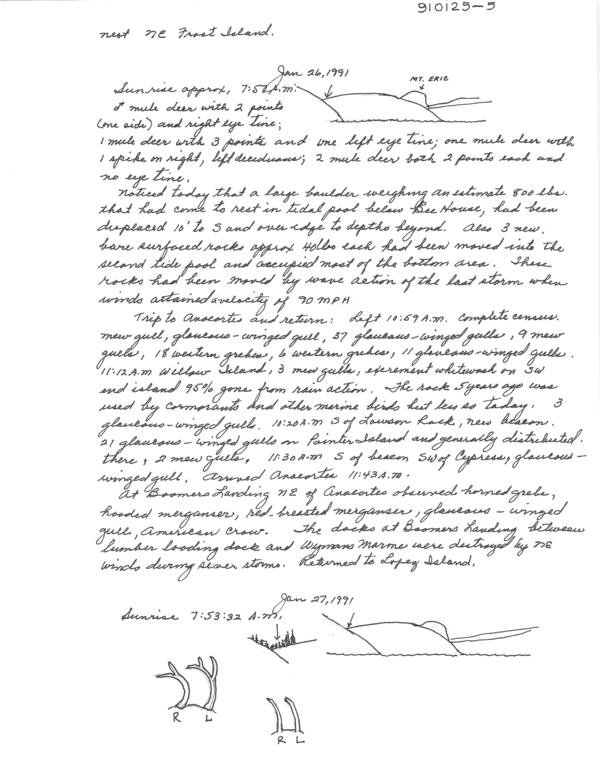 910125-5
nest NE Frost Island.
Jan 26, 1991
MT. ERIE
Sunrise approx, 7:5 A.M.
♂ mule deer with 2 points
(one side) and right eye tine;
1 mule deer with 3 points and one left eye tine; one mule deer with
1 spike on right, left deciduous; 2 mule deer both 2 points each and
no eye tine.
Noticed today that a large boulder weighing an estimate 800 lbs.
that had come to rest in tidal pool below Bee House, had been
displaced 10' to S and over edge to depths beyond. Also 3 new
bare surfaced rocks approx 40lbs each had been moved into the
second tide pool and occupied most of the bottom area. These
rocks had been moved by wave action of the last storm when
winds attained a velocity of 90 MPH
Trip to Anacortes and return: Left 10:59 A.M. complete census.
mew gull, glaucous-winged gull, 37 glaucous-winged gulls, 9 mew
gulls, 18 western grebes, 6 western grebes, 11 glaucous-winged gulls.
11:12 A.M Willow Island, 3 mew gulls, excrement whitewash on SW
end island 95% gone from rain action. The rock 5 years ago was
used by cormorants and other marine birds but less so today. 3
glaucous-winged gulls. 11:20 A.M S of Lawson Rock, new beacon.
21 glaucous-winged gulls on Pointer Island and generally distributed
there, 2 mew gulls, 11:30 A.M S of beacon SW of Cypress, glaucous-
winged gull, Arrived Anacortes 11:43 A.M.
At Boomers Landing NE of Anacortes observed horned grebe,
hooded merganser, red breasted merganser, glaucous-winged
gull, American crow. The docks at Boomers Landing between
lumber loading dock and Wymans Marine were destroyed by NE
winds during sever storms. Returned to Lopez Island.
Jan 27, 1991
Sunrise 7:53:32 A.M.
R L
R L